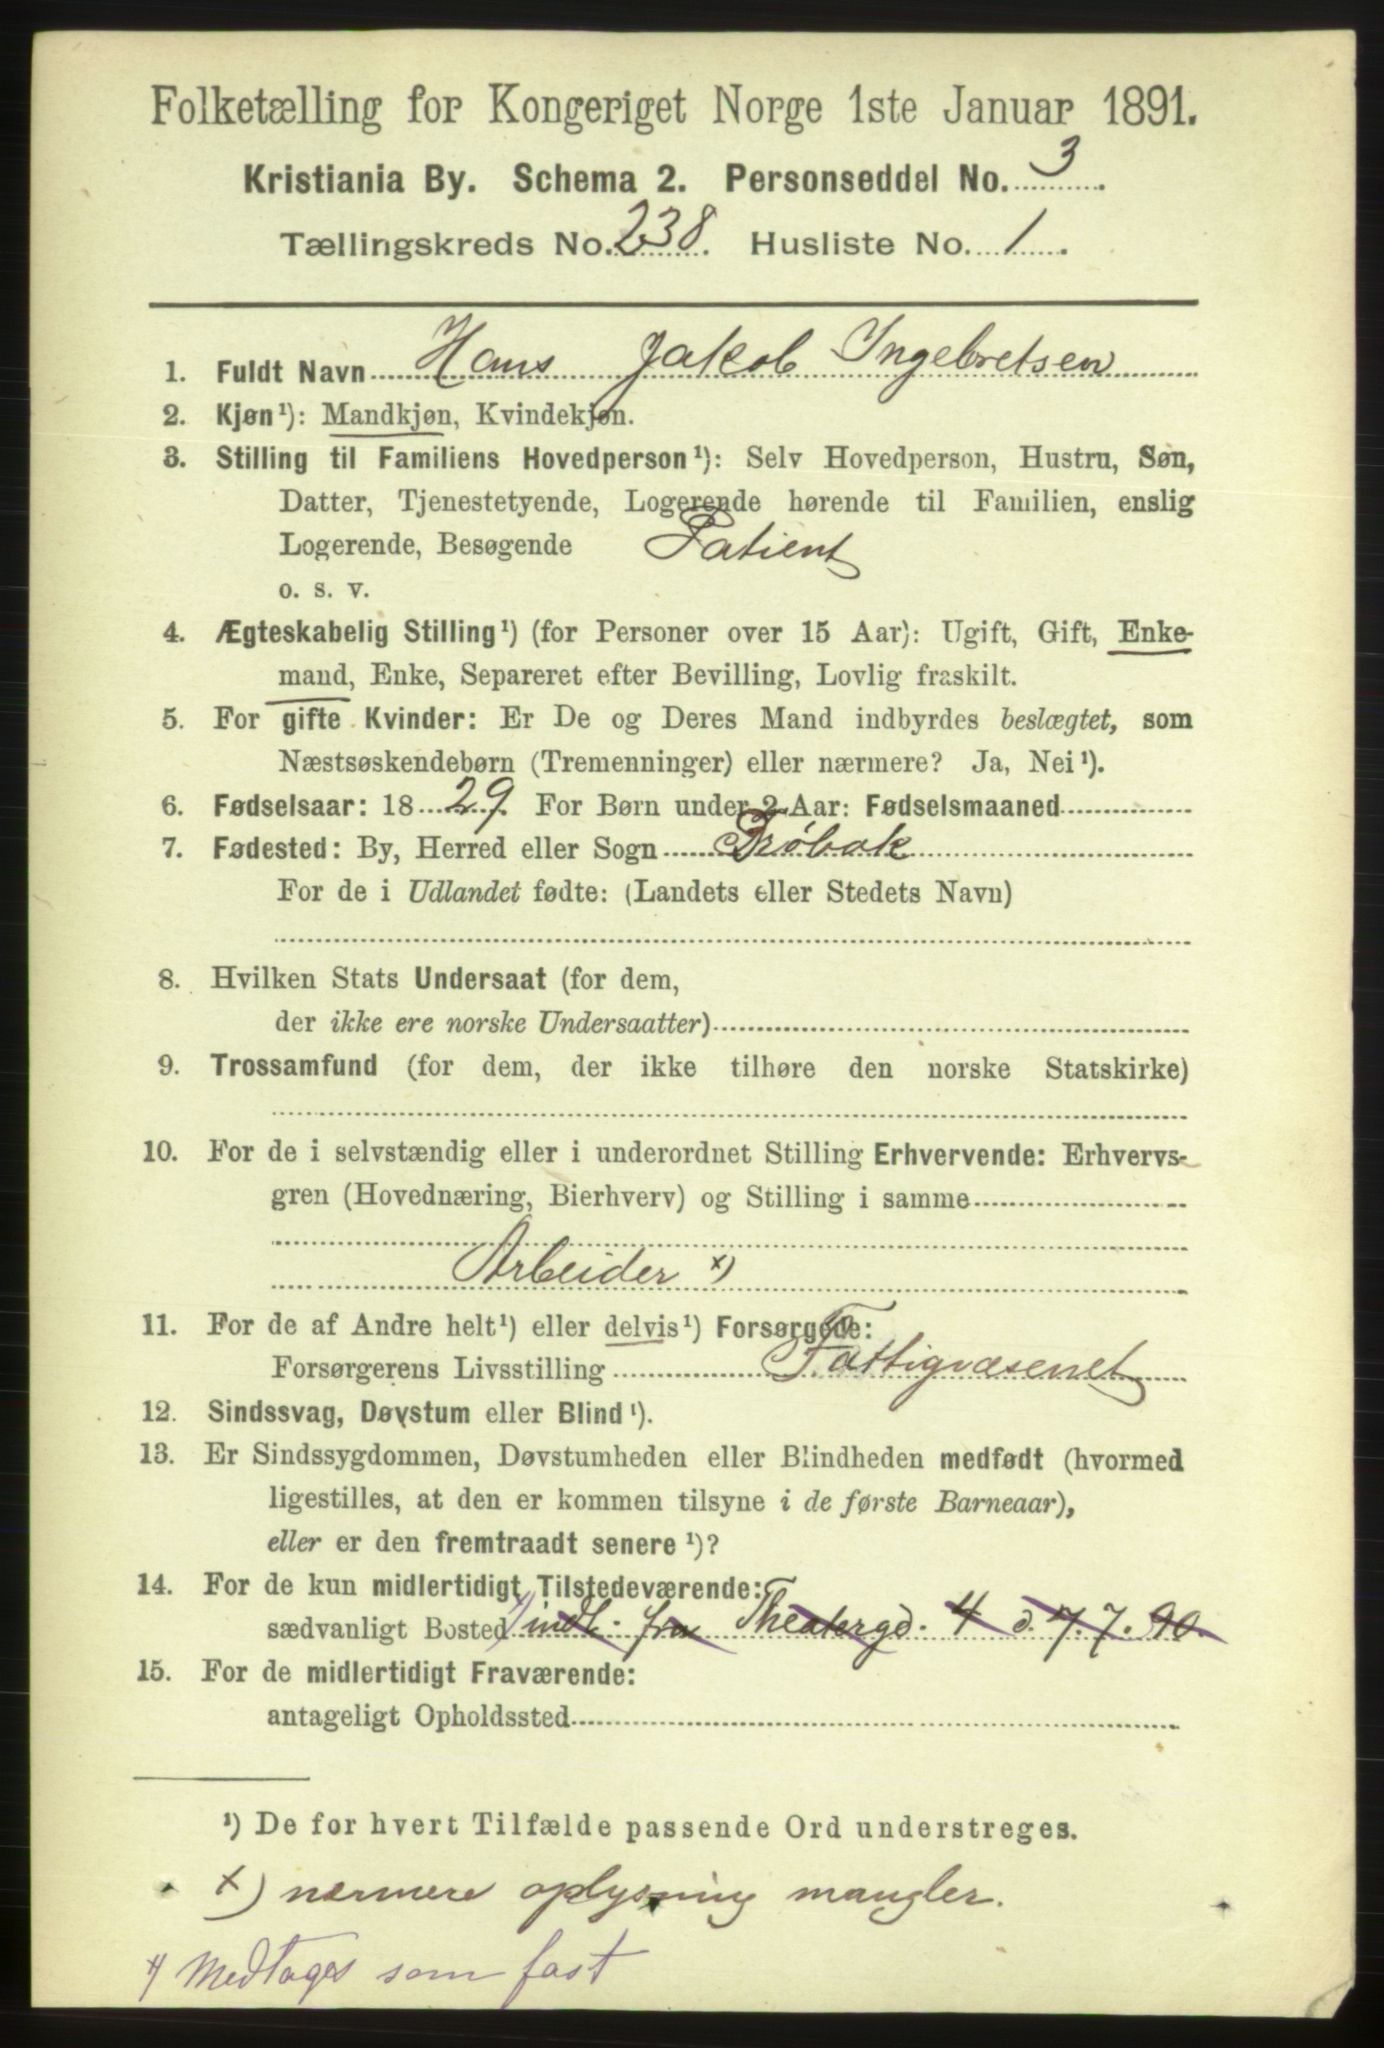 Folketælling for Kongeriget Norge 1ste Januar 1891.
Kristiania By. Schema 2. Personseddel No. 3.
Tællingskreds No. 238. Husliste No. 1.
1. Fuldt Navn Hans Jakob Ingebretsen
2. Kjøn¹): Mandkjøn, Kvindekjøn.
3. Stilling til Familiens Hovedperson¹): Selv Hovedperson, Hustru, Søn,
Datter, Tjenestetyende, Logerende hørende til Familien, enslig
Logerende, Besøgende Patient
o. s. v.
4. Ægteskabelig Stilling¹) (for Personer over 15 Aar): Ugift, Gift, Enke-
mand, Enke, Separeret efter Bevilling, Lovlig fraskilt.
5. For gifte Kvinder: Er De og Deres Mand indbyrdes beslægtet, som
Næstsøskendebørn (Tremenninger) eller nærmere? Ja, Nei¹).
6. Fødselsaar: 1829. For Børn under 2 Aar: Fødselsmaaned
7. Fødested: By, Herred eller Sogn Drøbak
For de i Udlandet fødte: (Landets eller Stedets Navn)
8. Hvilken Stats Undersaat (for dem,
der ikke ere norske Undersaatter)
9. Trossamfund (for dem, der ikke tilhøre den norske Statskirke)
10. For de i selvstændig eller i underordnet Stilling Erhvervende: Erhvervs-
gren (Hovednæring, Bierhverv) og Stilling i samme
Arbeider x)
11. For de af Andre helt¹) eller delvis¹) Forsørgede:
Forsørgerens Livsstilling Fattigvæsenet
12. Sindssvag, Døvstum eller Blind¹).
13. Er Sindssygdommen, Døvstumheden eller Blindheden medfødt (hvormed
ligestilles, at den er kommen tilsyne i de første Barneaar),
eller er den fremtraadt senere¹)?
14. For de kun midlertidigt Tilstedeværende:
sædvanligt Bosted indl. fra Theatergd. 4 d. 7.7.90.
15. For de midlertidigt Fraværende:
antageligt Opholdssted
¹) De for hvert Tilfælde passende Ord understreges.
x) nærmere oplysning mangler.
Medtages som fast